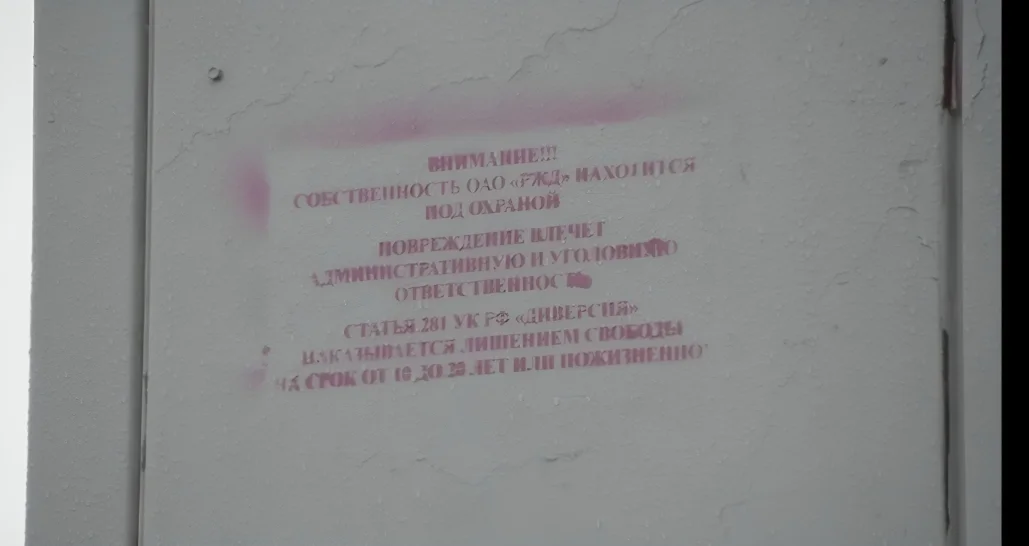 ВНИМАНИЕ!!!
СОБСТВЕННОСТЬ ОАО «РЖД» НАХОДИТСЯ
ПОД ОХРАНОЙ
ПОВРЕЖДЕНИЕ ВЛЕЧЕТ
АДМИНИСТРАТИВНУЮ И УГОЛОВНУЮ
ОТВЕТСТВЕННОСТЬ
СТАТЬЯ 281 УК РФ «ДИВЕРСИЯ»
НАКАЗЫВАЕТСЯ ЛИШЕНИЕМ СВОБОДЫ
НА СРОК ОТ 10 ДО 20 ЛЕТ ИЛИ ПОЖИЗНЕННО